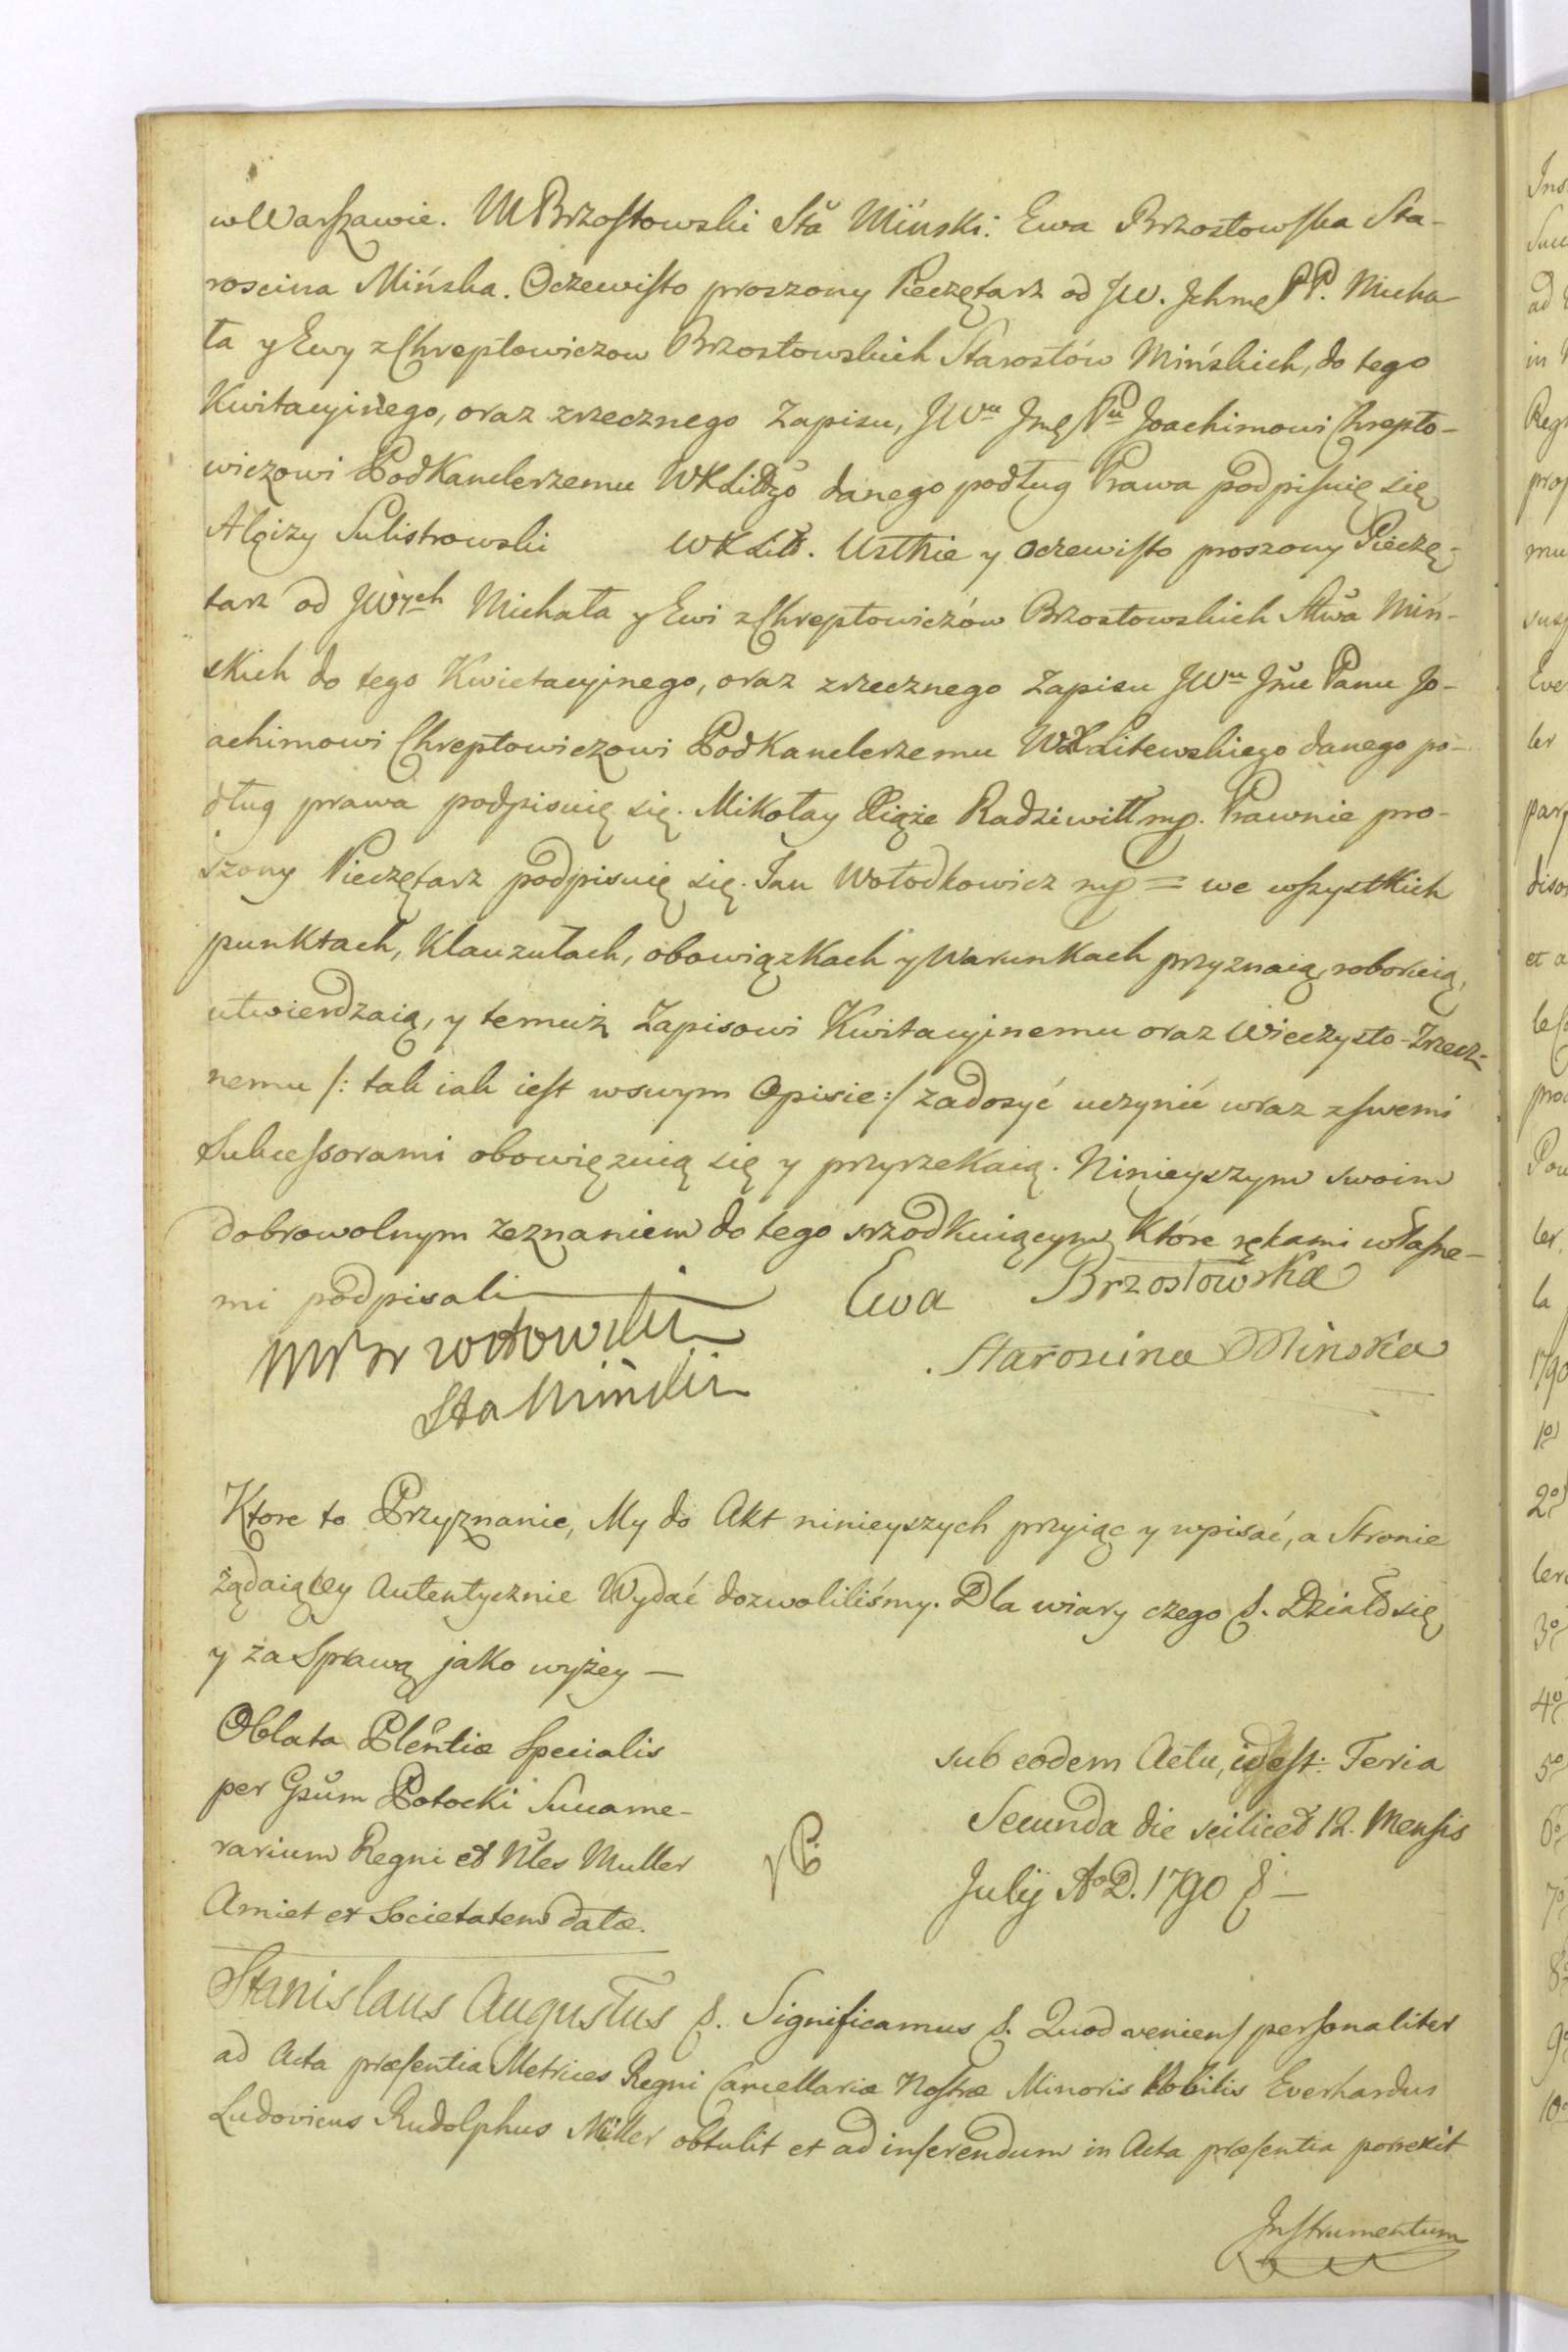 w Warszawie. M Brzostowski Sta Miński. Ewa Brzostowska Sta-
roscina Mińska. Oczewisto proszony Pieczętarz od JW. Jchmę PP. Micha-
ła y Ewy z Chreptowiczow Brzostowskich Starostów Mińskich, do tego
Kwitacyinego, oraz zrzecznego Zapisu, JWu Jmę Pu Joachimowi Chrepto-
wiczowi PodKanclerzemu WXLittgo danego podług Prawa podpisuię się
Aloizy Sulistrowski WXLitt. Ustnie y oczewisto proszony Pieczę-
tarz od JWych Michała y Ewi z Chreptowiczów Brzostowskich Stwa Miń-
skich do tego Kwietacyjnego, oraz zrzecznego Zapisu JWu Jmc Panu Jo-
achimowi Chreptowiczowi PodKanclerzemu WXLitewskiego danego po-
dług prawa podpisuię się. Mikołay Xiąże Radziwiłł mp. Prawnie pro-
szony Pieczętarz podpisuię się. Jan Wołodkowicz mp = we wszystkich
punktach, Klauzułach, obowiązkach y Warunkach przyznaią, roboruią,
utwierdzaią, y temuż Zapisowi Kwitacyjnemu oraz Wieczysto-Zrzecz-
nemu /: tak iak iest w swym Opisie :/ zadosyć uczynić wraz z swemi
Sukcessorami obowięzuią się y przyrzekaią. Ninieyszym swoim
dobrowolnym zeznaniem do tego srzodkuiącym, Które rękami własne-
mi podpisali
Ewa Brzostowska
MBrzostowski
Staroscina Minska
Sta Miński
Ktore to Przyznanie, My do Akt ninieyszych przyiąc y wpisać, a Stronie
żądaiącey Autentycznie Wydać dozwoliliśmy. Dla wiary czego &. Działo się
y za Sprawą jako wyżey —
Oblata Plentiæ Specialis
per Gsum Potocki Succame-
rarium Regni et Nles Muller
Amiet et Societatem datæ.
sub eodem Actu, idest: Feria
Secunda die scilicet 12. Mensis
Julij AoD. 1790 &. —
Stanislaus Augustus &. Significamus &. Quod veniens personaliter
ad Acta præsentia Metrices Regni Cancellariæ Nostræ Minoris Nobilis Everhardus
Ludovicus Rudolphus Müller obtulit et ad inserendum in Acta præsentia porrexit
Instrumentum